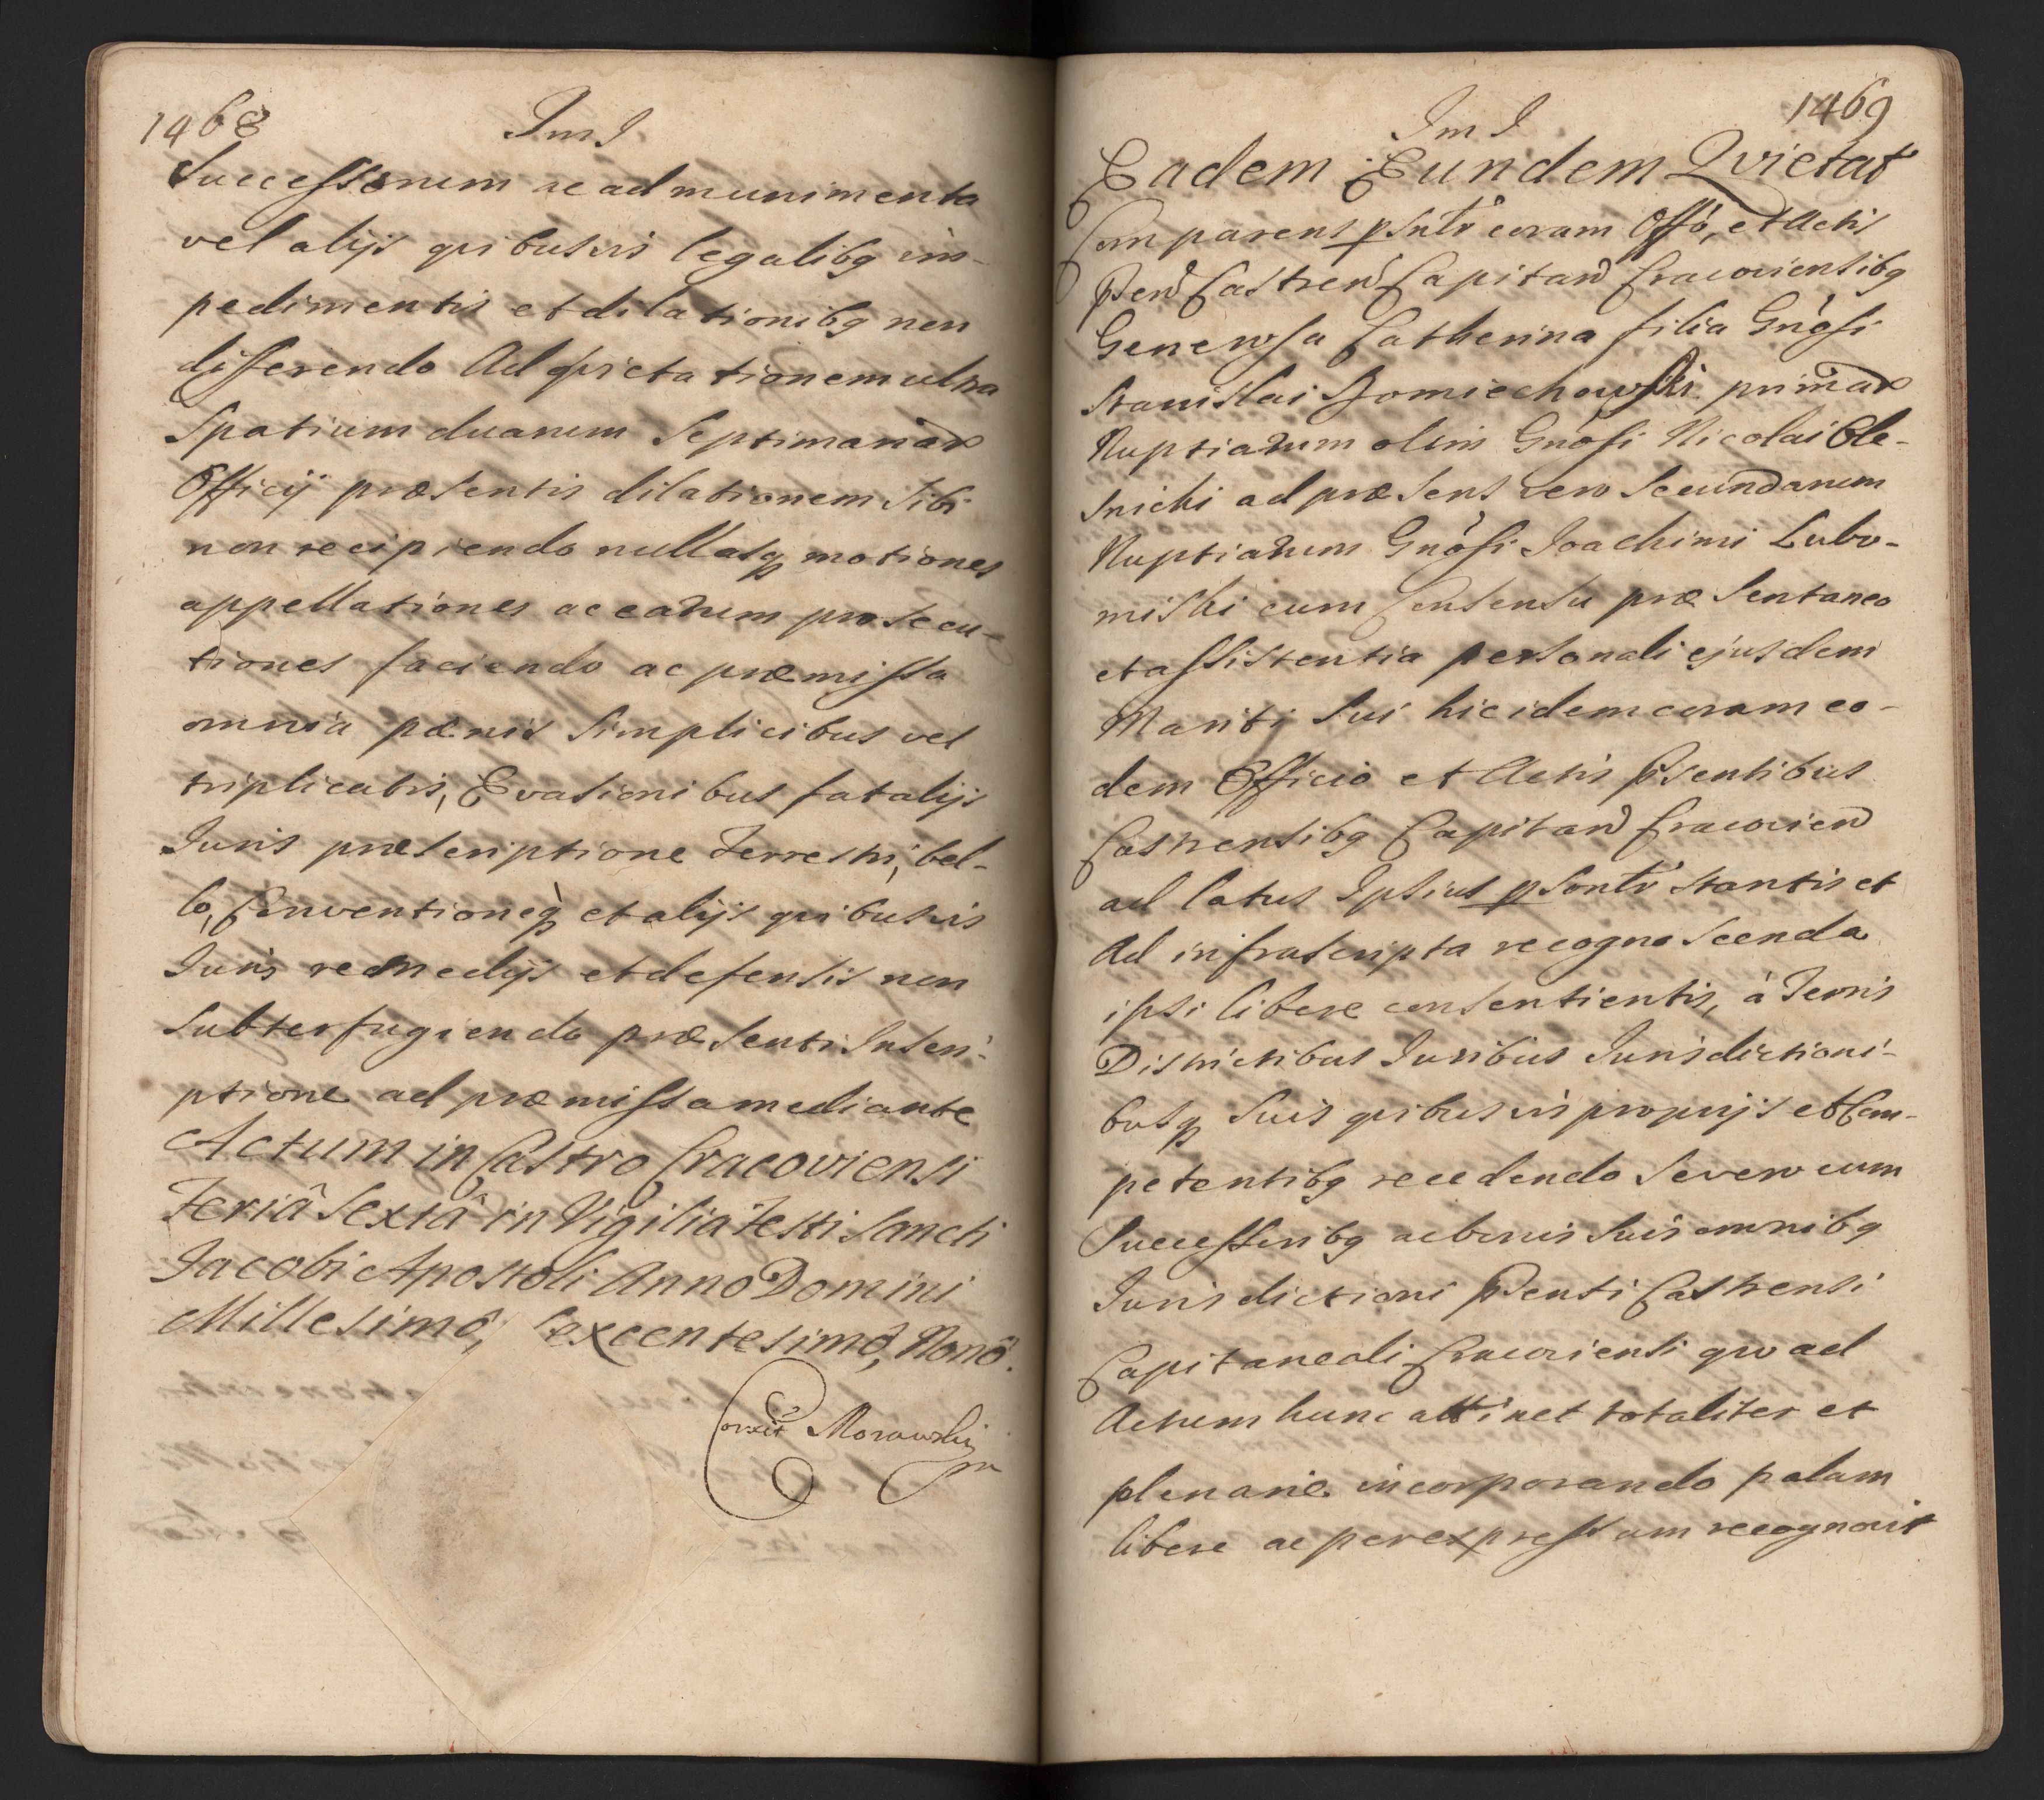 1468
Im J.
Successorum ac ad munimenta
vel alijs quibusvis legalibq im-
pedimentis et dilationibq non
differendo Ad quietationem ultra
Spatium duarum Septimanar
Officij præsentis dilationem Sibi
non recipiendo nullasq motiones
appellationes ac earum prosecu-
tiones faciendo ac præmissa
omnia pænis Simplicibus vel
triplicatis, Evasionibus fatalijs
Juris præscriptione Terrestri, bel-
lo, Conventioneq et alijs quibusvis
Juris remedijs et defensis non
Subterfugiendo præsenti Inscri-
ptione ad præmissa mediante
Actum in Castro Cracoviensi
Feriâ Sextâ in Vigilia Festi Sancti
Jacobi Apostoli Anno Domini
Millesimô, Sexcentesimô, Nonô.
Corexit Morawski
mp
1469
Im J.
Eadem Eundem Qvietat
Comparens psntr coram Offô, et Actis
Pñ Castren Capitan Cracoviensibq
Generosa Catherina filia Gnôsi
Stanislai Domiechowski primar
Nuptiarum olim Gnôsi Nicolai Ole-
snicki ad præsens vero Secundarum
Nuptiarum Gnôsi Joachimi Lubo-
mirski cum Consensu præsentaneo
et assistentia personali ejusdem
Mariti Sui hic idem coram eo-
dem Officio et Actis Psentibus
Castrensibq Capitan Cracovien
ad latus Ipsius psontr stantis et
Ad infrascripta recognoscenda
ipsi libere consentientis, à Terris
Districtibus Juribus Jurisdictioni-
busq Suis quibusvis proprijs et Com-
petentibq recedendo Se vero cum
Successoribq ac bonis Suis omnibq
Jurisdictioni Psenti Castrensi
Capitaneali Cracoviensi quo ad
Actum hunc attinet totaliter et
plenarie incorporando palam
libere ac per expressum recognovit